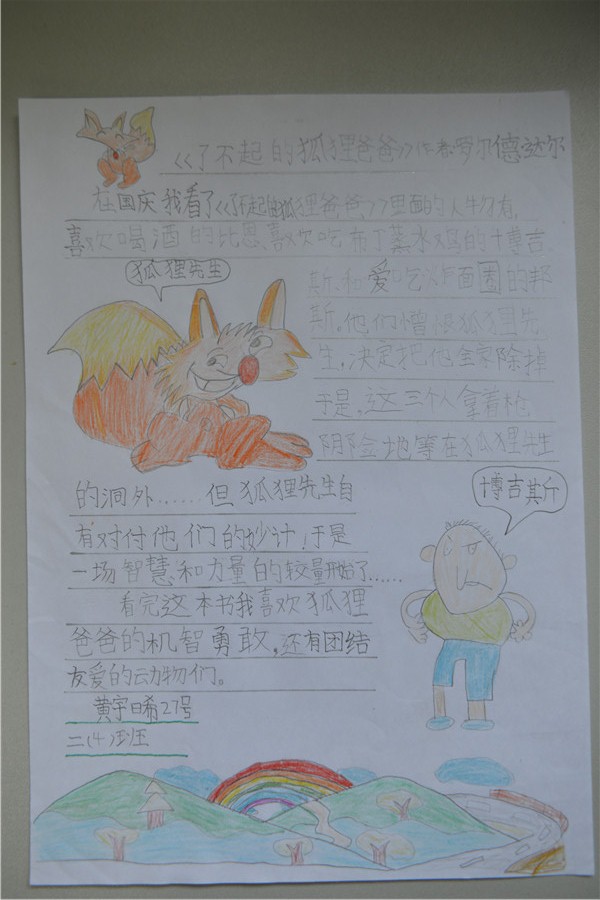 《了不起的狐狸爸爸》作者:罗尔德·达尔
在国庆我看了《了不起的狐狸爸爸》里面的人物有,
喜欢喝酒的比恩,喜欢吃布丁蒸水鸡的博吉
狐狸先生
斯,和爱吃炸面圈的邦
斯,他们憎恨狐狸先
生,决定把他全家除掉
于是,这三个人拿着枪
阴险地等在狐狸先生
的洞外……但狐狸先生自
有对付他们的妙计!于是
一场智慧和力量的较量开始了……
博吉斯
看完这本书我喜欢狐狸
爸爸的机智勇敢,还有团结
友爱的动物们。
黄宇晞27号
二(4)班